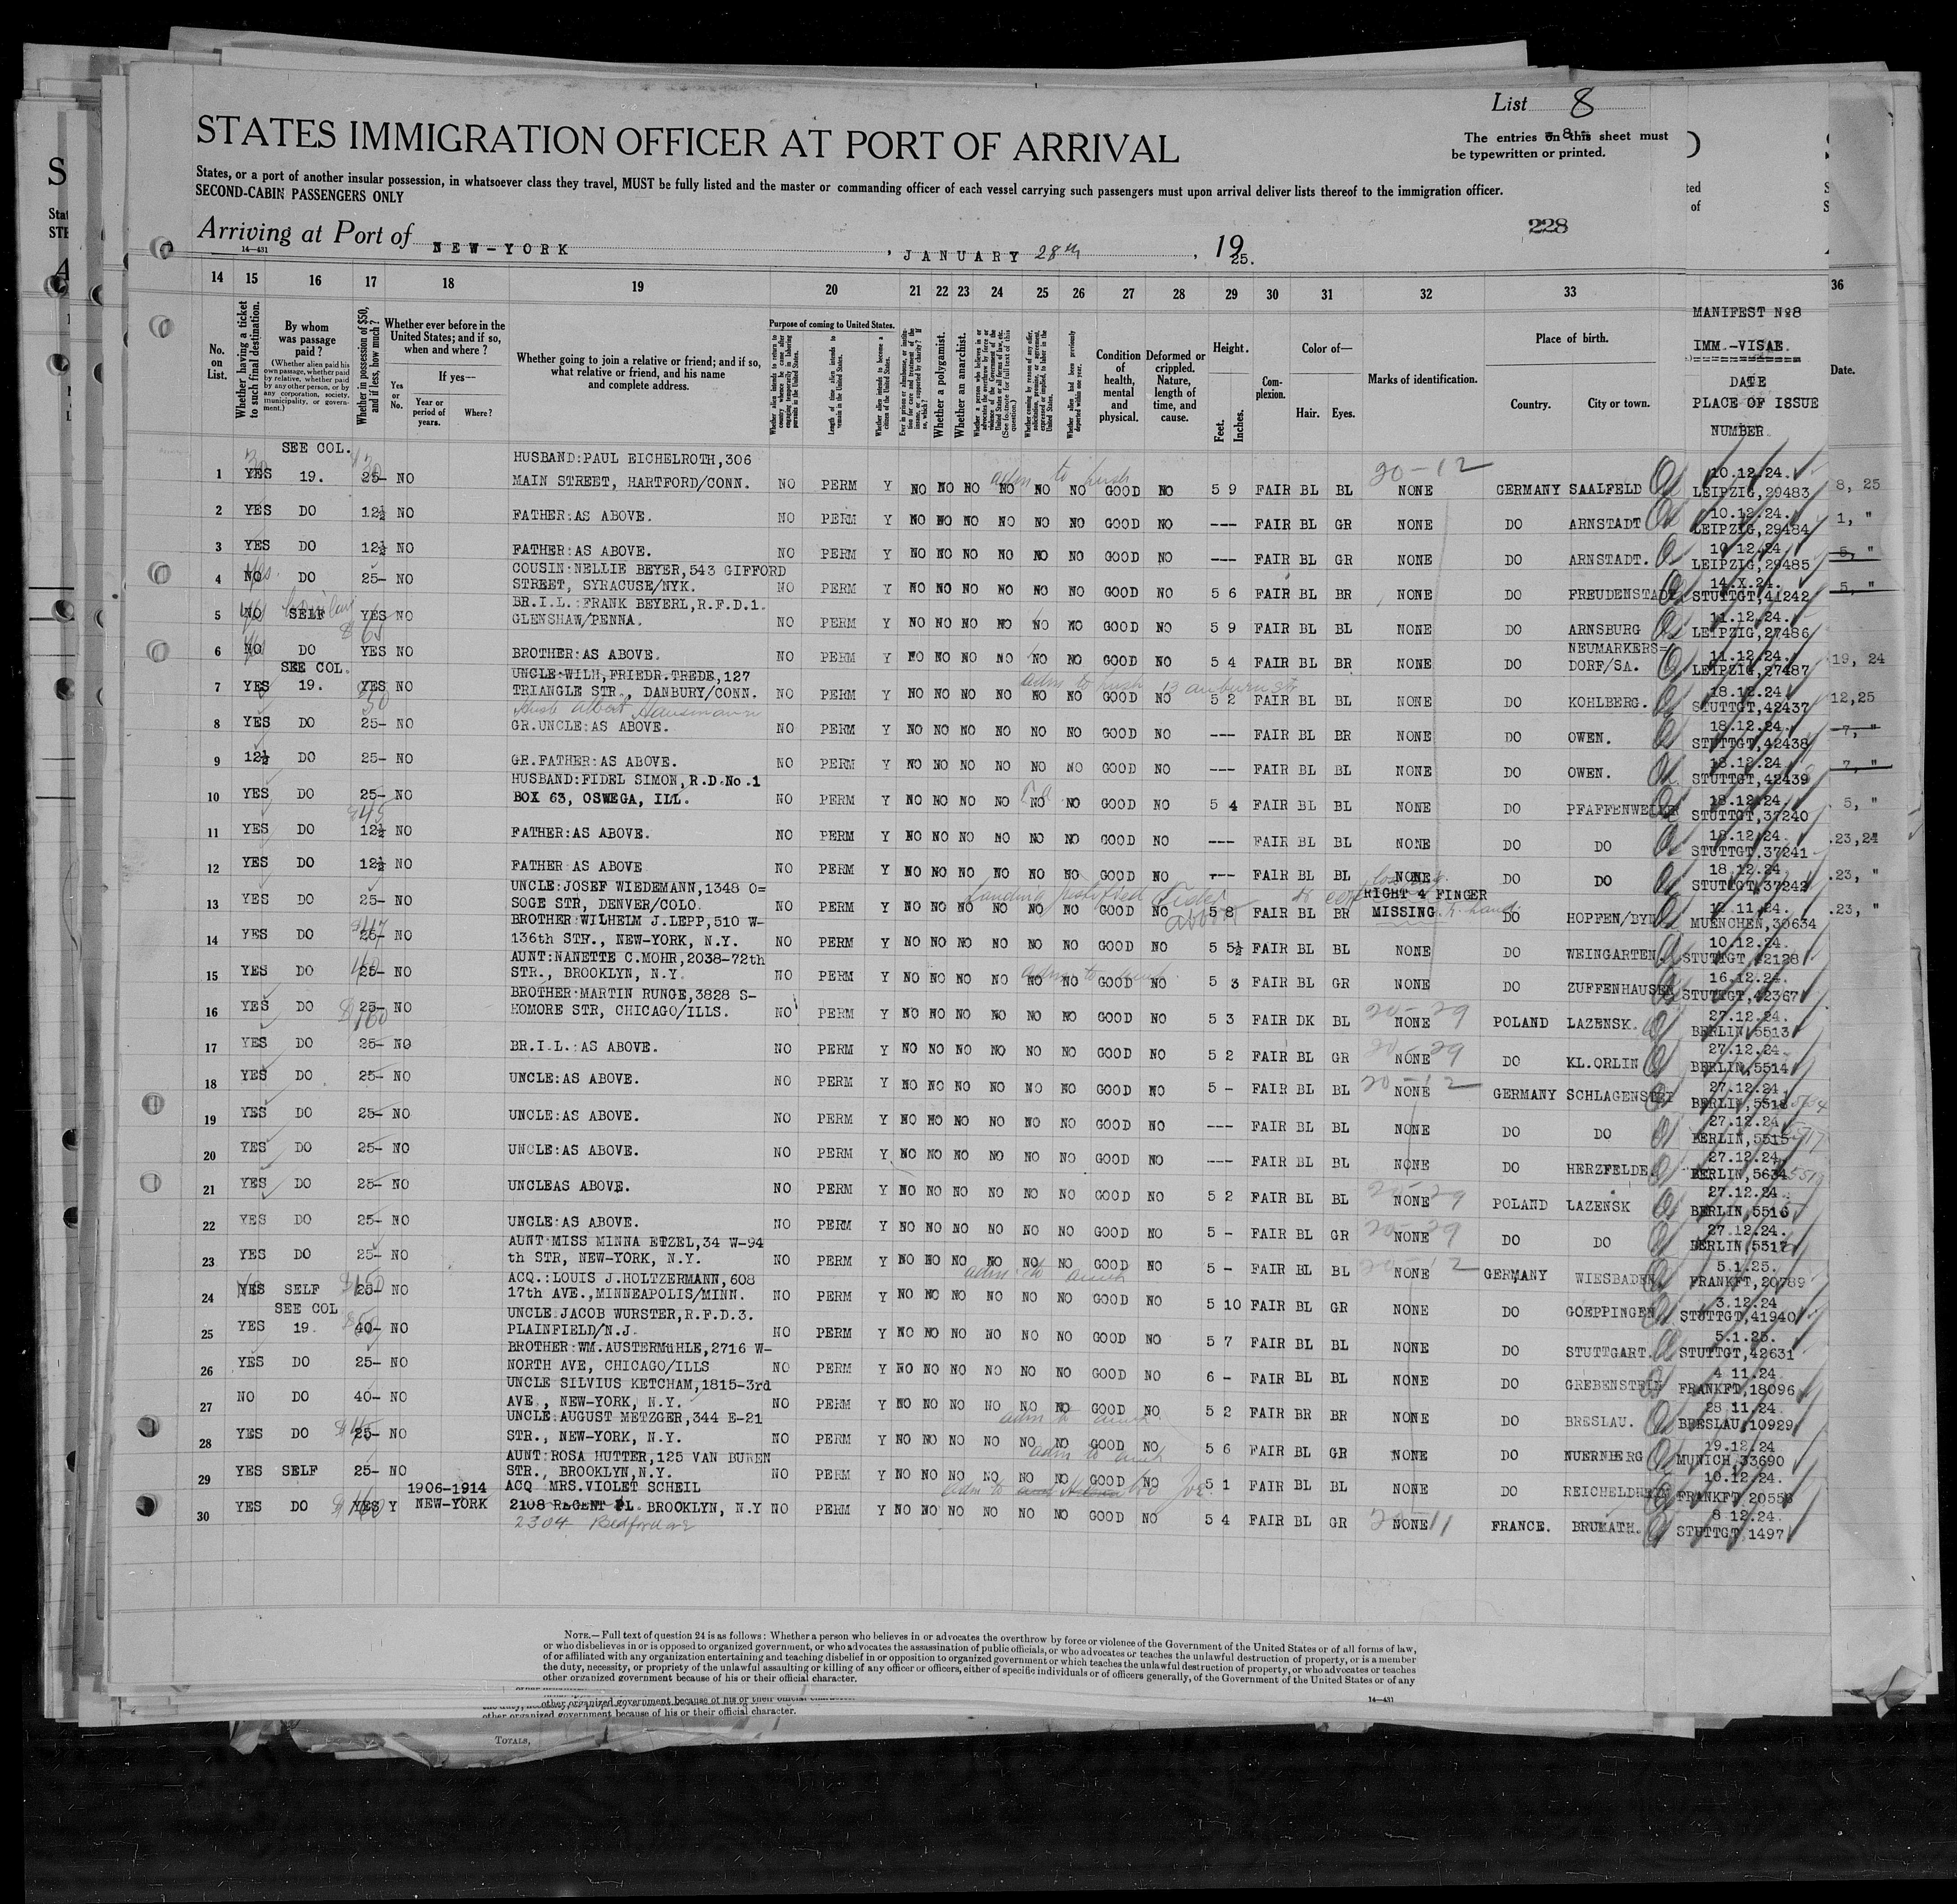 List 8
STATES IMMIGRATION OFFICER AT PORT OF ARRIVAL
The entries on this sheet must
be typewritten or printed.
States, or a port of another insular possession, in whatsoever class they travel, MUST be fully listed and the master or commanding officer of each vessel carrying such passengers must upon arrival deliver lists thereof to the immigration officer.
SECOND-CABIN PASSENGERS ONLY
228
Arriving at Port of NEW-YORK, JANUARY 28th, 1925.
14—431
14 15 16 17 18 19 20 21 22 23 24 25 26 27 28 29 30 31 32 33 36
No. on List.
Whether having a ticket to such final destination.
By whom was passage paid?
(Whether alien paid his own passage, whether paid by relative, whether paid by any other person, or by any corporation, society, municipality, or government.)
Whether in possession of $50, and if less, how much?
Whether ever before in the United States; and if so, when and where?
Yes or No.
If yes—
Year or period of years.
Where?
Whether going to join a relative or friend; and if so, what relative or friend, and his name and complete address.
Purpose of coming to United States.
Whether a polygamist.
Whether an anarchist.
Condition of health, mental and physical.
Deformed or crippled. Nature, length of time, and cause.
Height.
Feet. Inches.
Complexion.
Color of—
Hair. Eyes.
Marks of identification.
Place of birth.
Country. City or town.
MANIFEST No8
IMM.-VISAE.
DATE
PLACE OF ISSUE
NUMBER
Date.
SEE COL. HUSBAND:PAUL EICHELROTH,306 20-12 10.12.24.
1 YES 19. 25- NO MAIN STREET, HARTFORD/CONN. NO PERM Y NO NO NO NO NO NO GOOD NO 5 9 FAIR BL BL NONE GERMANY SAALFELD LEIPZIG,29483 8, 25
10.12.24.
2 YES DO 12½ NO FATHER:AS ABOVE. NO PERM Y NO NO NO NO NO NO GOOD NO --- FAIR BL GR NONE DO ARNSTADT LEIPZIG,29484 1, "
10 12.24
3 YES DO 12½ NO FATHER:AS ABOVE. NO PERM Y NO NO NO NO NO NO GOOD NO --- FAIR BL GR NONE DO ARNSTADT. LEIPZIG,29485 5, "
COUSIN:NELLIE BEYER,543 GIFFORD 14.X.24.
4 NO DO 25- NO STREET, SYRACUSE/NYK. NO PERM Y NO NO NO NO NO NO GOOD NO 5 6 FAIR BL BR NONE DO FREUDENSTADT STUTTGT,41242 5, "
BR.I.L.:FRANK BEYERL,R.F.D.1. 11.12.24.
5 NO SELF YES NO GLENSHAW/PENNA. NO PERM Y NO NO NO NO NO NO GOOD NO 5 9 FAIR BL BL NONE DO ARNSBURG LEIPZIG,27486
NEUMARKERS= 11.12.24.
6 NO DO YES NO BROTHER:AS ABOVE. NO PERM Y NO NO NO NO NO NO GOOD NO 5 4 FAIR BL BR NONE DO DORF/SA. LEIPZIG,27487 19, 24
SEE COL. UNCLE:WILH,FRIEDR.TREDE,127 adm to hush 13 auburn str 18.12.24
7 YES 19. YES NO TRIANGLE STR., DANBURY/CONN. NO PERM Y NO NO NO NO NO NO GOOD NO 5 2 FAIR BL BL NONE DO KOHLBERG. STUTTGT,42437 12,25
18.12.24.
8 YES DO 25- NO GR.UNCLE:AS ABOVE. NO PERM Y NO NO NO NO NO NO GOOD NO --- FAIR BL BR NONE DO OWEN. STUTTGT,42438 7, "
18.12.24.
9 12½ DO 25- NO GR.FATHER:AS ABOVE. NO PERM Y NO NO NO NO NO NO GOOD NO --- FAIR BL BL NONE DO OWEN. STUTTGT,42439 7, "
HUSBAND:FIDEL SIMON,R.D.No.1 18.12.24.
10 YES DO 25- NO BOX 63, OSWEGA, ILL. NO PERM Y NO NO NO NO NO NO GOOD NO 5 4 FAIR BL BL NONE DO PFAFFENWEILER STUTTGT,37240 5, "
$45 18.12.24.
11 YES DO 12½ NO FATHER:AS ABOVE. NO PERM Y NO NO NO NO NO NO GOOD NO --- FAIR BL BL NONE DO DO STUTTGT.37241 .23,24
18 12.24
12 YES DO 12½ NO FATHER AS ABOVE NO PERM Y NO NO NO NO NO NO GOOD NO --- FAIR BL BL NONE DO DO STUTTGT,37242 .23, "
UNCLE:JOSEF WIEDEMANN,1348 O= RIGHT 4 FINGER 12 11.24.
13 YES DO 25- NO SOGE STR, DENVER/COLO. NO PERM Y NO NO NO NO NO NO GOOD NO 5 8 FAIR BL BR MISSING DO HOPFEN/BYR MUENCHEN,30634 .23, "
BROTHER:WILHELM J.LEPP,510 W- 10.12.24.
14 YES DO 25- NO 136th STR., NEW-YORK, N.Y. NO PERM Y NO NO NO NO NO NO GOOD NO 5 5½ FAIR BL BL NONE DO WEINGARTEN. STUTTGT,42128
AUNT:NANETTE C.MOHR,2038-72th 16.12.24.
15 YES DO 25- NO STR., BROOKLYN, N.Y. NO PERM Y NO NO NO NO NO NO GOOD NO 5 3 FAIR BL GR NONE DO ZUFFENHAUSEN STUTTGT,42367
BROTHER:MARTIN RUNGE,3828 S- 20-29 27.12.24.
16 YES DO 25- NO HOMORE STR, CHICAGO/ILLS. NO PERM Y NO NO NO NO NO NO GOOD NO 5 3 FAIR DK BL NONE POLAND LAZENSK. BERLIN,5513
$160 20-29 27.12.24.
17 YES DO 25- NO BR.I.L.:AS ABOVE. NO PERM Y NO NO NO NO NO NO GOOD NO 5 2 FAIR BL GR NONE DO KL.ORLIN BERLIN,5514
20-12 27.12.24
18 YES DO 25- NO UNCLE:AS ABOVE. NO PERM Y NO NO NO NO NO NO GOOD NO 5 - FAIR BL BL NONE GERMANY SCHLAGENSTEI BERLIN,5518 5634
27.12.24.
19 YES DO 25- NO UNCLE:AS ABOVE. NO PERM Y NO NO NO NO NO NO GOOD NO --- FAIR BL BL NONE DO DO BERLIN,5515
27.12.24.
20 YES DO 25- NO UNCLE:AS ABOVE. NO PERM Y NO NO NO NO NO NO GOOD NO --- FAIR BL BL NONE DO HERZFELDE. BERLIN,5634
20-29 27.12.24.
21 YES DO 25- NO UNCLEAS ABOVE. NO PERM Y NO NO NO NO NO NO GOOD NO 5 2 FAIR BL BL NONE POLAND LAZENSK BERLIN,5516
20-29 27.12.24.
22 YES DO 25- NO UNCLE:AS ABOVE. NO PERM Y NO NO NO NO NO NO GOOD NO 5 - FAIR BL GR NONE DO DO BERLIN,5517
AUNT:MISS MINNA ETZEL,34 W-94 5.1.25.
23 YES DO 25- NO th STR, NEW-YORK, N.Y. NO PERM Y NO NO NO NO NO NO GOOD NO 5 - FAIR BL BL NONE GERMANY WIESBADEN FRANKFT,20789
ACQ.:LOUIS J.HOLTZERMANN,608 3.12.24
24 YES SELF 25- NO 17th AVE.,MINNEAPOLIS/MINN. NO PERM Y NO NO NO NO NO NO GOOD NO 5 10 FAIR BL GR NONE DO GOEPPINGEN STUTTGT,41940
SEE COL UNCLE JACOB WURSTER,R.F.D.3. 5.1.25.
25 YES 19. 40- NO PLAINFIELD/N.J. NO PERM Y NO NO NO NO NO NO GOOD NO 5 7 FAIR BL BL NONE DO STUTTGART. STUTTGT,42631
BROTHER:WM.AUSTERMuHLE,2716 W- 4 11.24
26 YES DO 25- NO NORTH AVE, CHICAGO/ILLS NO PERM Y NO NO NO NO NO NO GOOD NO 6 - FAIR BL BL NONE DO GREBENSTEIN FRANKFT,18096
UNCLE SILVIUS KETCHAM,1815-3rd 28 11.24
27 NO DO 40- NO AVE., NEW-YORK, N.Y. NO PERM Y NO NO NO NO NO NO GOOD NO 5 2 FAIR BR BR NONE DO BRESLAU. BRESLAU,10929
UNCLE:AUGUST METZGER,344 E-21 19.12.24
28 YES DO 25- NO STR., NEW-YORK, N.Y. NO PERM Y NO NO NO NO NO NO GOOD NO 5 6 FAIR BL GR NONE DO NUERNBERG MUNICH,33690
AUNT:ROSA HUTTER,125 VAN BUREN 10.12.24.
29 YES SELF 25- NO STR., BROOKLYN,N.Y. NO PERM Y NO NO NO NO NO NO GOOD NO 5 1 FAIR BL BL NONE DO FRANKFT 20556
1906-1914 ACQ MRS.VIOLET SCHEIL 8 12.24.
30 YES DO YES Y NEW-YORK 2108 REGENT PL. BROOKLYN, N.Y NO PERM Y NO NO NO NO NO NO GOOD NO 5 4 FAIR BL GR NONE FRANCE. BRUMATH. STUTTGT,1497
2304 Bedford ave
NOTE.—Full text of question 24 is as follows: Whether a person who believes in or advocates the overthrow by force or violence of the Government of the United States or of all forms of law,
or who disbelieves in or is opposed to organized government, or who advocates the assassination of public officials, or who advocates or teaches the unlawful destruction of property, or is a member
of or affiliated with any organization entertaining and teaching disbelief in or opposition to organized government or which teaches the unlawful destruction of property, or who advocates or teaches
the duty, necessity, or propriety of the unlawful assaulting or killing of any officer or officers, either of specific individuals or of officers generally, of the Government of the United States or of any
other organized government because of his or their official character.
14—431
other organized government because of his or their official character.
other organized government because of his or their official character.
TOTALS,